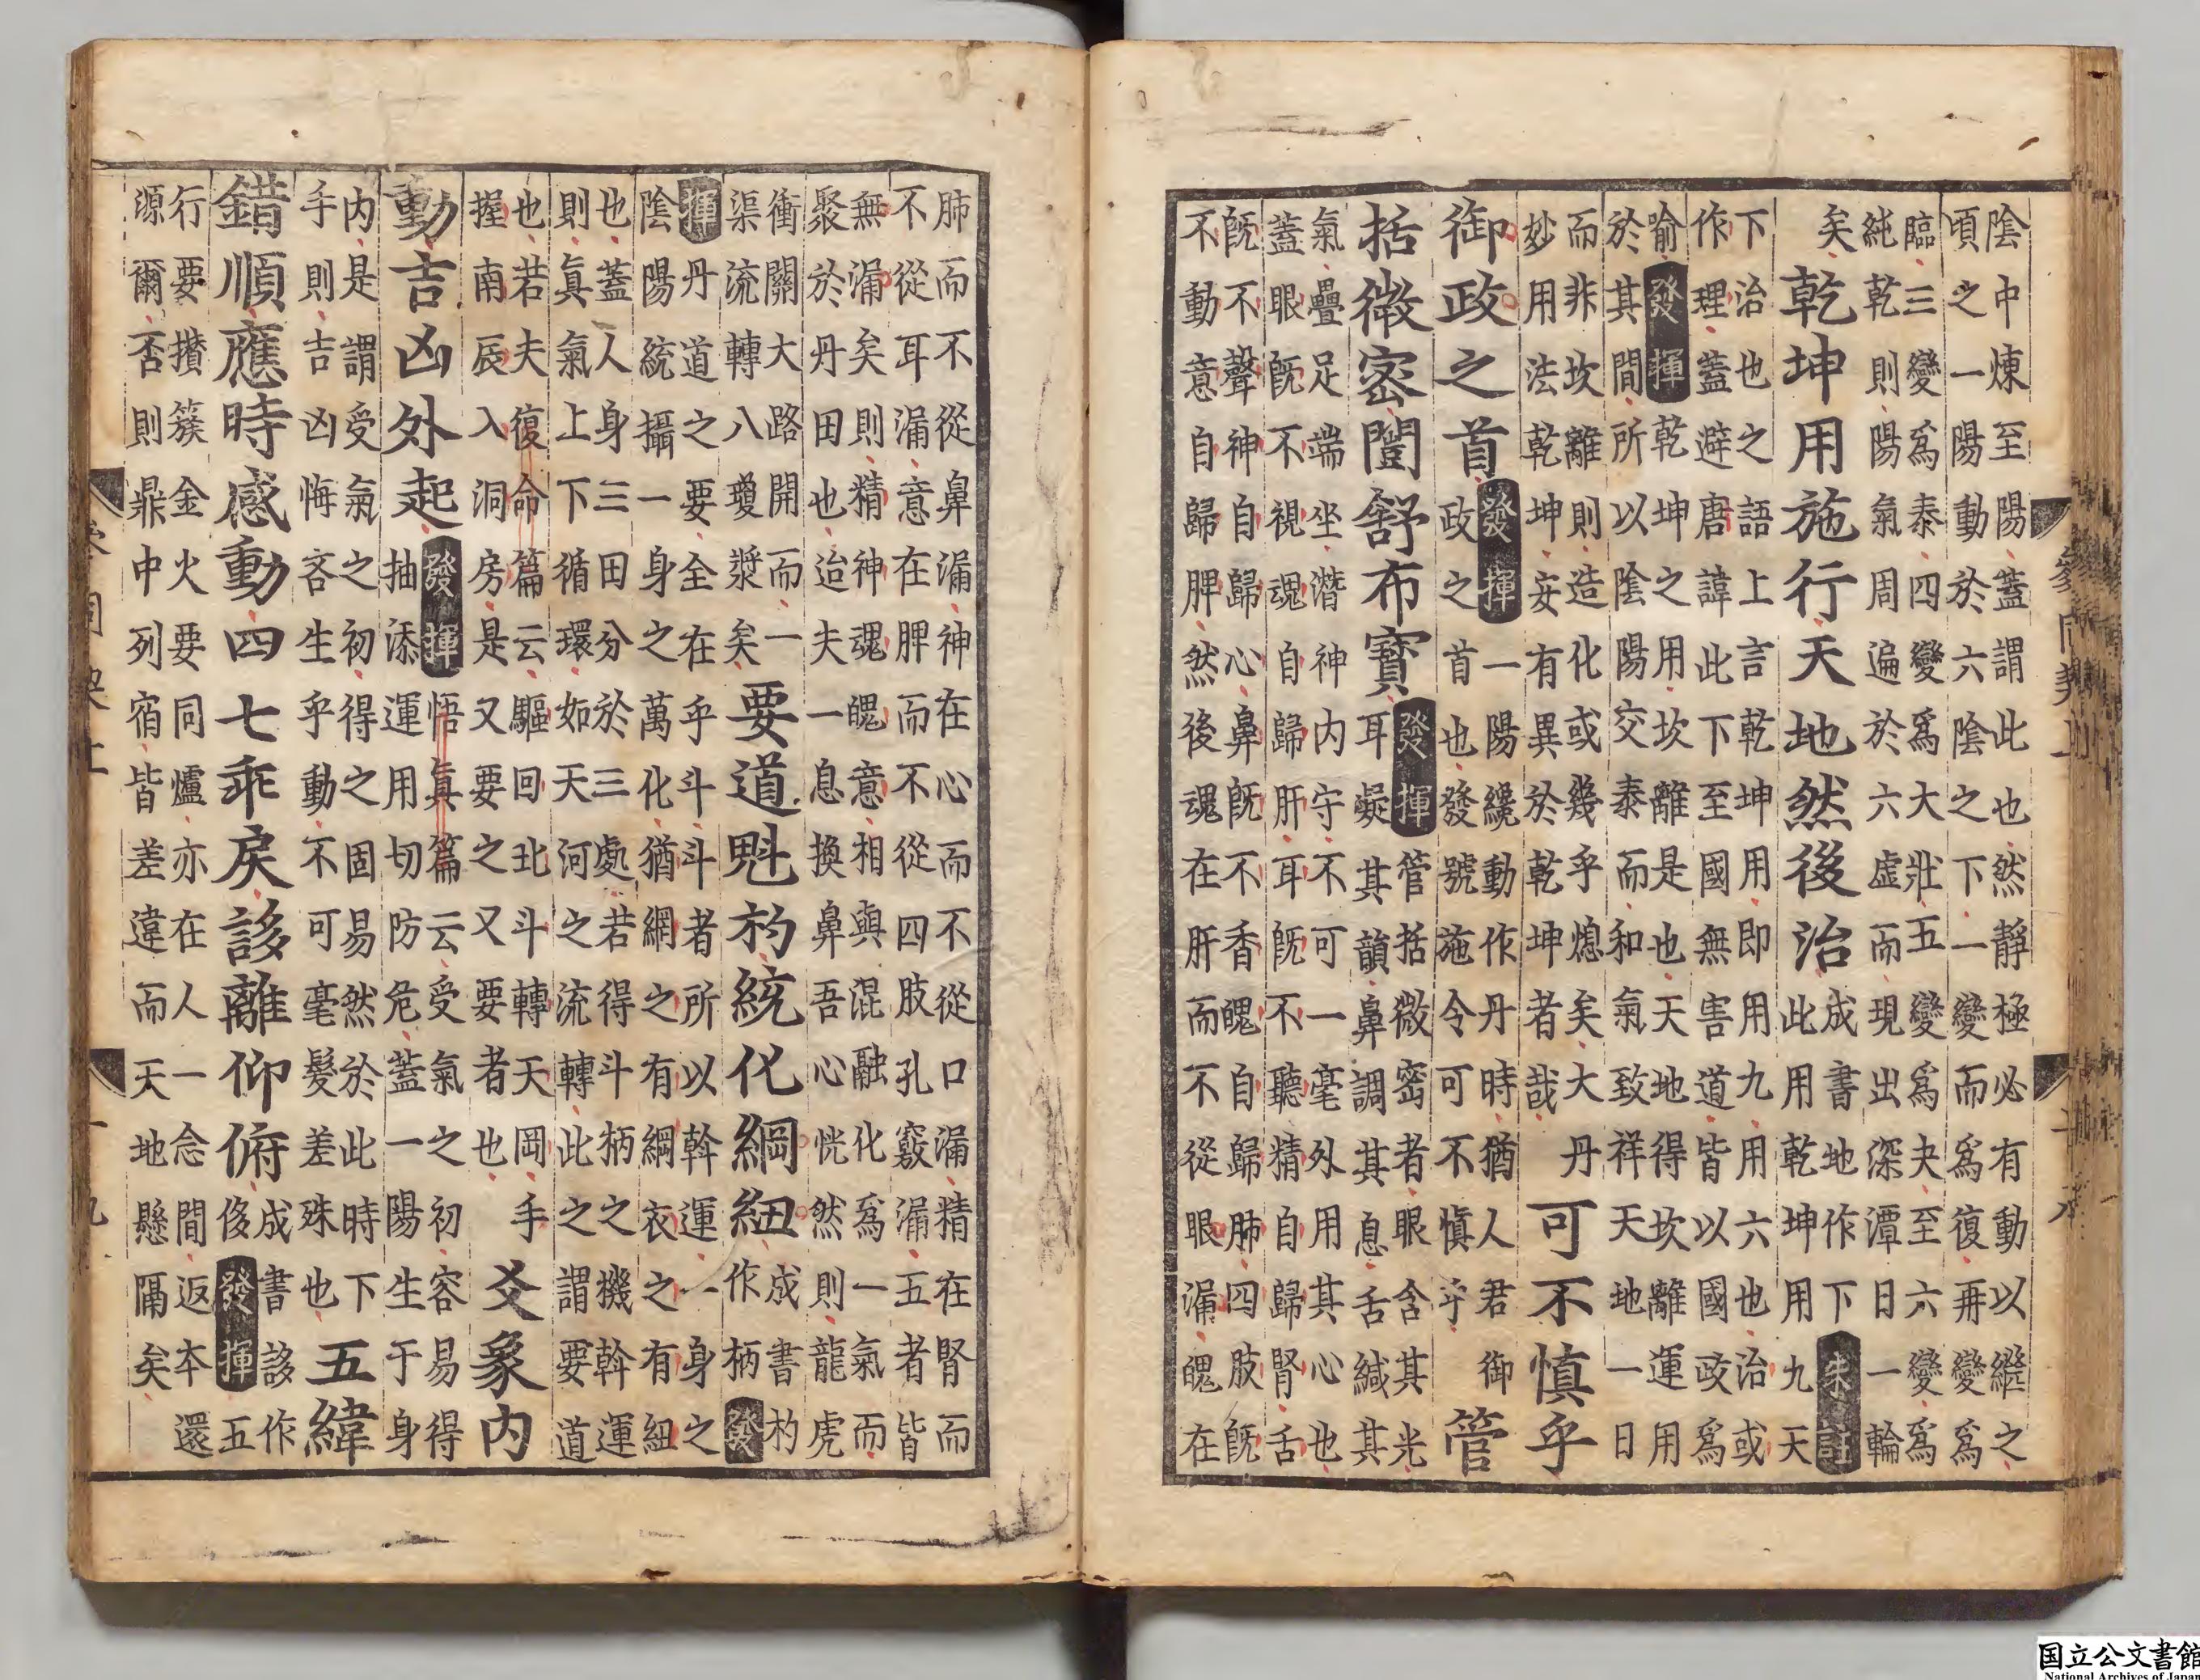 陰中煉至陽蓋謂此也然靜極必有動以繼之
頃之一陽動於六陰之下一變而爲復再變爲
臨三變爲泰四變爲大壯五變爲夬至六變爲
純乾則陽氣周遍於六虛而現出深潭日一輪
矣
乾坤用施行天地然後治
成書地作下朱註
此用乾坤用九天
下治也之語上言乾坤用即用九用六也治或
作理蓋避唐諱此下至國無害道皆以國政爲
喻發揮乾坤之用用坎離是也天地得坎離運用
於其間所以陰陽交泰而和氣致祥天地一日
而非坎離則造化或幾乎熄矣大丹
妙用法乾坤妄有異於乾坤者哉
可不慎乎
御政之首
發揮一陽纔動作丹時猶人君御
政之首首也發號施令可不慎乎
管
括微密闓舒布寶
發揮管括微密者眼含其光
耳凝其韻鼻調其息舌緘其
氣疊足端坐潛神内守不可一毫外用其心也
蓋眼旣不視魂自歸肝耳旣不聽精自歸腎舌
旣不聲神自歸心鼻旣不香魄自歸肺四肢旣
不動意自歸脾然後魂在肝而不從眼漏魄在
肺而不從鼻漏神在心而不從口漏精在腎而
不從耳漏意在脾而不從四肢孔竅漏五者皆
無漏矣則精神魂魄意相與混融化爲一氣而
聚於丹田也迨夫一息換鼻吾心恍然則龍虎
衝關大路開而一
渠流轉八瓊漿矣
要道魁杓統化綱紐
成書杓
作柄發
揮丹道之要全在乎斗斗者所以斡運一身之
陰陽統攝一身之萬化猶網之有綱衣之有紐
也蓋人身三田分於三處若得斗柄之機斡運
則眞氣上下循環如天河之流轉此之謂要道
也若夫復命篇云驅回北斗轉天岡手
握南辰入洞房是又要之又要者也
爻象内
動吉凶外起
發揮悟眞篇云受氣之初容易得
抽添運用切防危蓋一陽生于身
内是謂受氣之初得之固易然於此時下
手則吉凶悔吝生乎動不可毫髮差殊也
五緯
錯順應時感動四七乖戾誃離仰俯
成書誃作
侈發揮五
行要攢簇金火要同爐亦在人一念間返本還
源爾否則鼎中列宿皆差違而天地懸隔矣
国立公文書館
National Archives of Japan